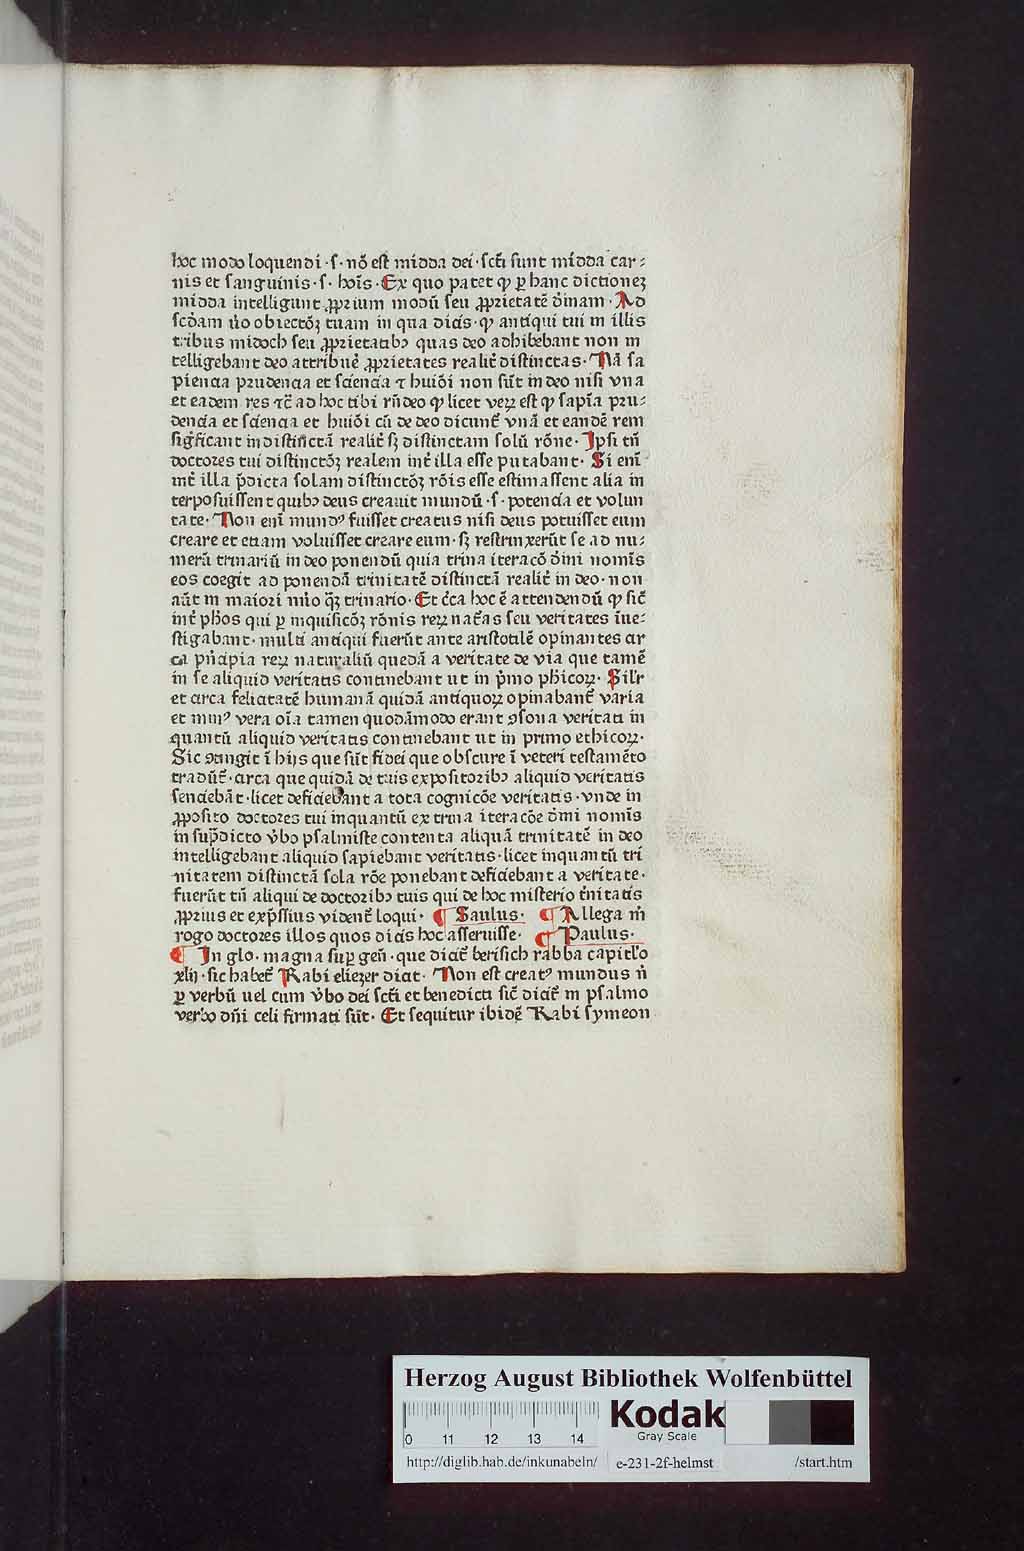 hoc modo loquendi · s · nõ est midda dei · sct̃i sunt midda car⸗
nis et sanguinis · s · hoĩs · Ex quo patet ꝙ ꝑ hanc dictionez
midda intelligunt ꝓprium modũ seu ꝓprietatẽ diuinam · Ad
scd̃am ṽo obiectõꝫ tuam in qua dicis · ꝙ antiqui tui in illis
tribus midoch seu ꝓprietatibꝫ quas deo adhibebant non in
telligebant deo attribuẽ ꝓprietates realit̃ distinctas · Nã sa
piencia prudencia et sciencia ⁊ huiõi non sũt in deo nisi vna
et eadem res ⁊c̃ ad hoc tibi rñdeo ꝙ licet veꝝ est ꝙ sapĩa pru⸗
dencia et sciencia et huiõi cũ de deo dicunt̃ vnã et eandẽ rem
sigñficant indistinctã realit̃ sꝫ distinctam solũ rõne · Ipsi tñ
doctores tui distinctõꝫ realem int̃ illa esse putabant · Si eni
int̃ illa p̃dicta solam distinctõꝫ rõis esse estimassent alia in
terposuissent quibꝫ deus creauit mundũ · s · potencia et volun
tate · Non eni mundꝰ fuisset creatus nisi deus potuisset eum
creare et etiam voluisset creare eum · sꝫ restrinxerũt se ad nu⸗
merũ trinariũ in deo ponendũ quia trina iteracõ diuini nomĩs
eos coegit ad ponendã trinitatẽ distinctã realit̃ in deo · non
aũt in maiori nũo q̃ꝫ trinario · Et c̃ca hoc ẽ attendendũ ꝙ sic̃
int̃ pħos qui ꝑ inquisicõꝫ rõnis reꝝ nat̃as seu veritates ĩue⸗
stigabant · multi antiqui fuerũt ante aristotilẽ opinantes cir
ca pñcipia reꝝ naturaliũ quedã a veritate de via que tamẽ
in se aliquid veritatis continebant ut in p̃mo phicoꝝ · Silr̃
et circa felicitatẽ humanã quidã antiquoꝝ opinabant̃ varia
et minꝰ vera oĩa tamen quodãmodo erant ꝯsona veritati in
quantũ aliquid veritatis continebant ut in primo ethicoꝝ ·
Sic ꝯtingit ĩ hijs que sũt fidei que obscure ĩ veteri testamẽto
tradũt̃ · circa que quidã de tuis expositoribꝫ aliquid veritatis
senciebãt · licet deficiebant a tota cognicõe veritatis · vnde in
ꝓposito doctores tui inquantũ ex trina iteracõe diuini nomĩs
in sup̃dicto ṽbo psalmiste contenta aliquã trinitatẽ in deo
intelligebant aliquid sapiebant veritatis · licet inquantũ tri
nitatem distinctã sola rõe ponebant deficiebant a veritate ·
fuerũt tñ aliqui de doctoribꝫ tuis qui de hoc misterio t̃nitatis
ꝓprius et exp̃ssius vident̃ loqui · ¶ Saulus · ¶ Allega m̃
rogo doctores illos quos dicis hoc asseruisse · ¶ Paulus ·
¶ In glo · magna suꝑ geñ · que dicit̃ berisich rabba capitl̃o
xlij · sic habet̃ Rabi eliezer dicit · Non est creatꝰ mundus ñ
ꝑ verbũ uel cum ṽbo dei sct̃i et benedicti sic̃ dicit̃ in psalmo
verbo dñi celi firmati sũt · Et sequitur ibidẽ Rabi symeon
Herzog August Bibliothek Wolfenbüttel
Kodak
Gray Scale
0 11 12 13 14
http://diglib.hab.de/inkunabeln/ e-231-2f-helmst /start.htm